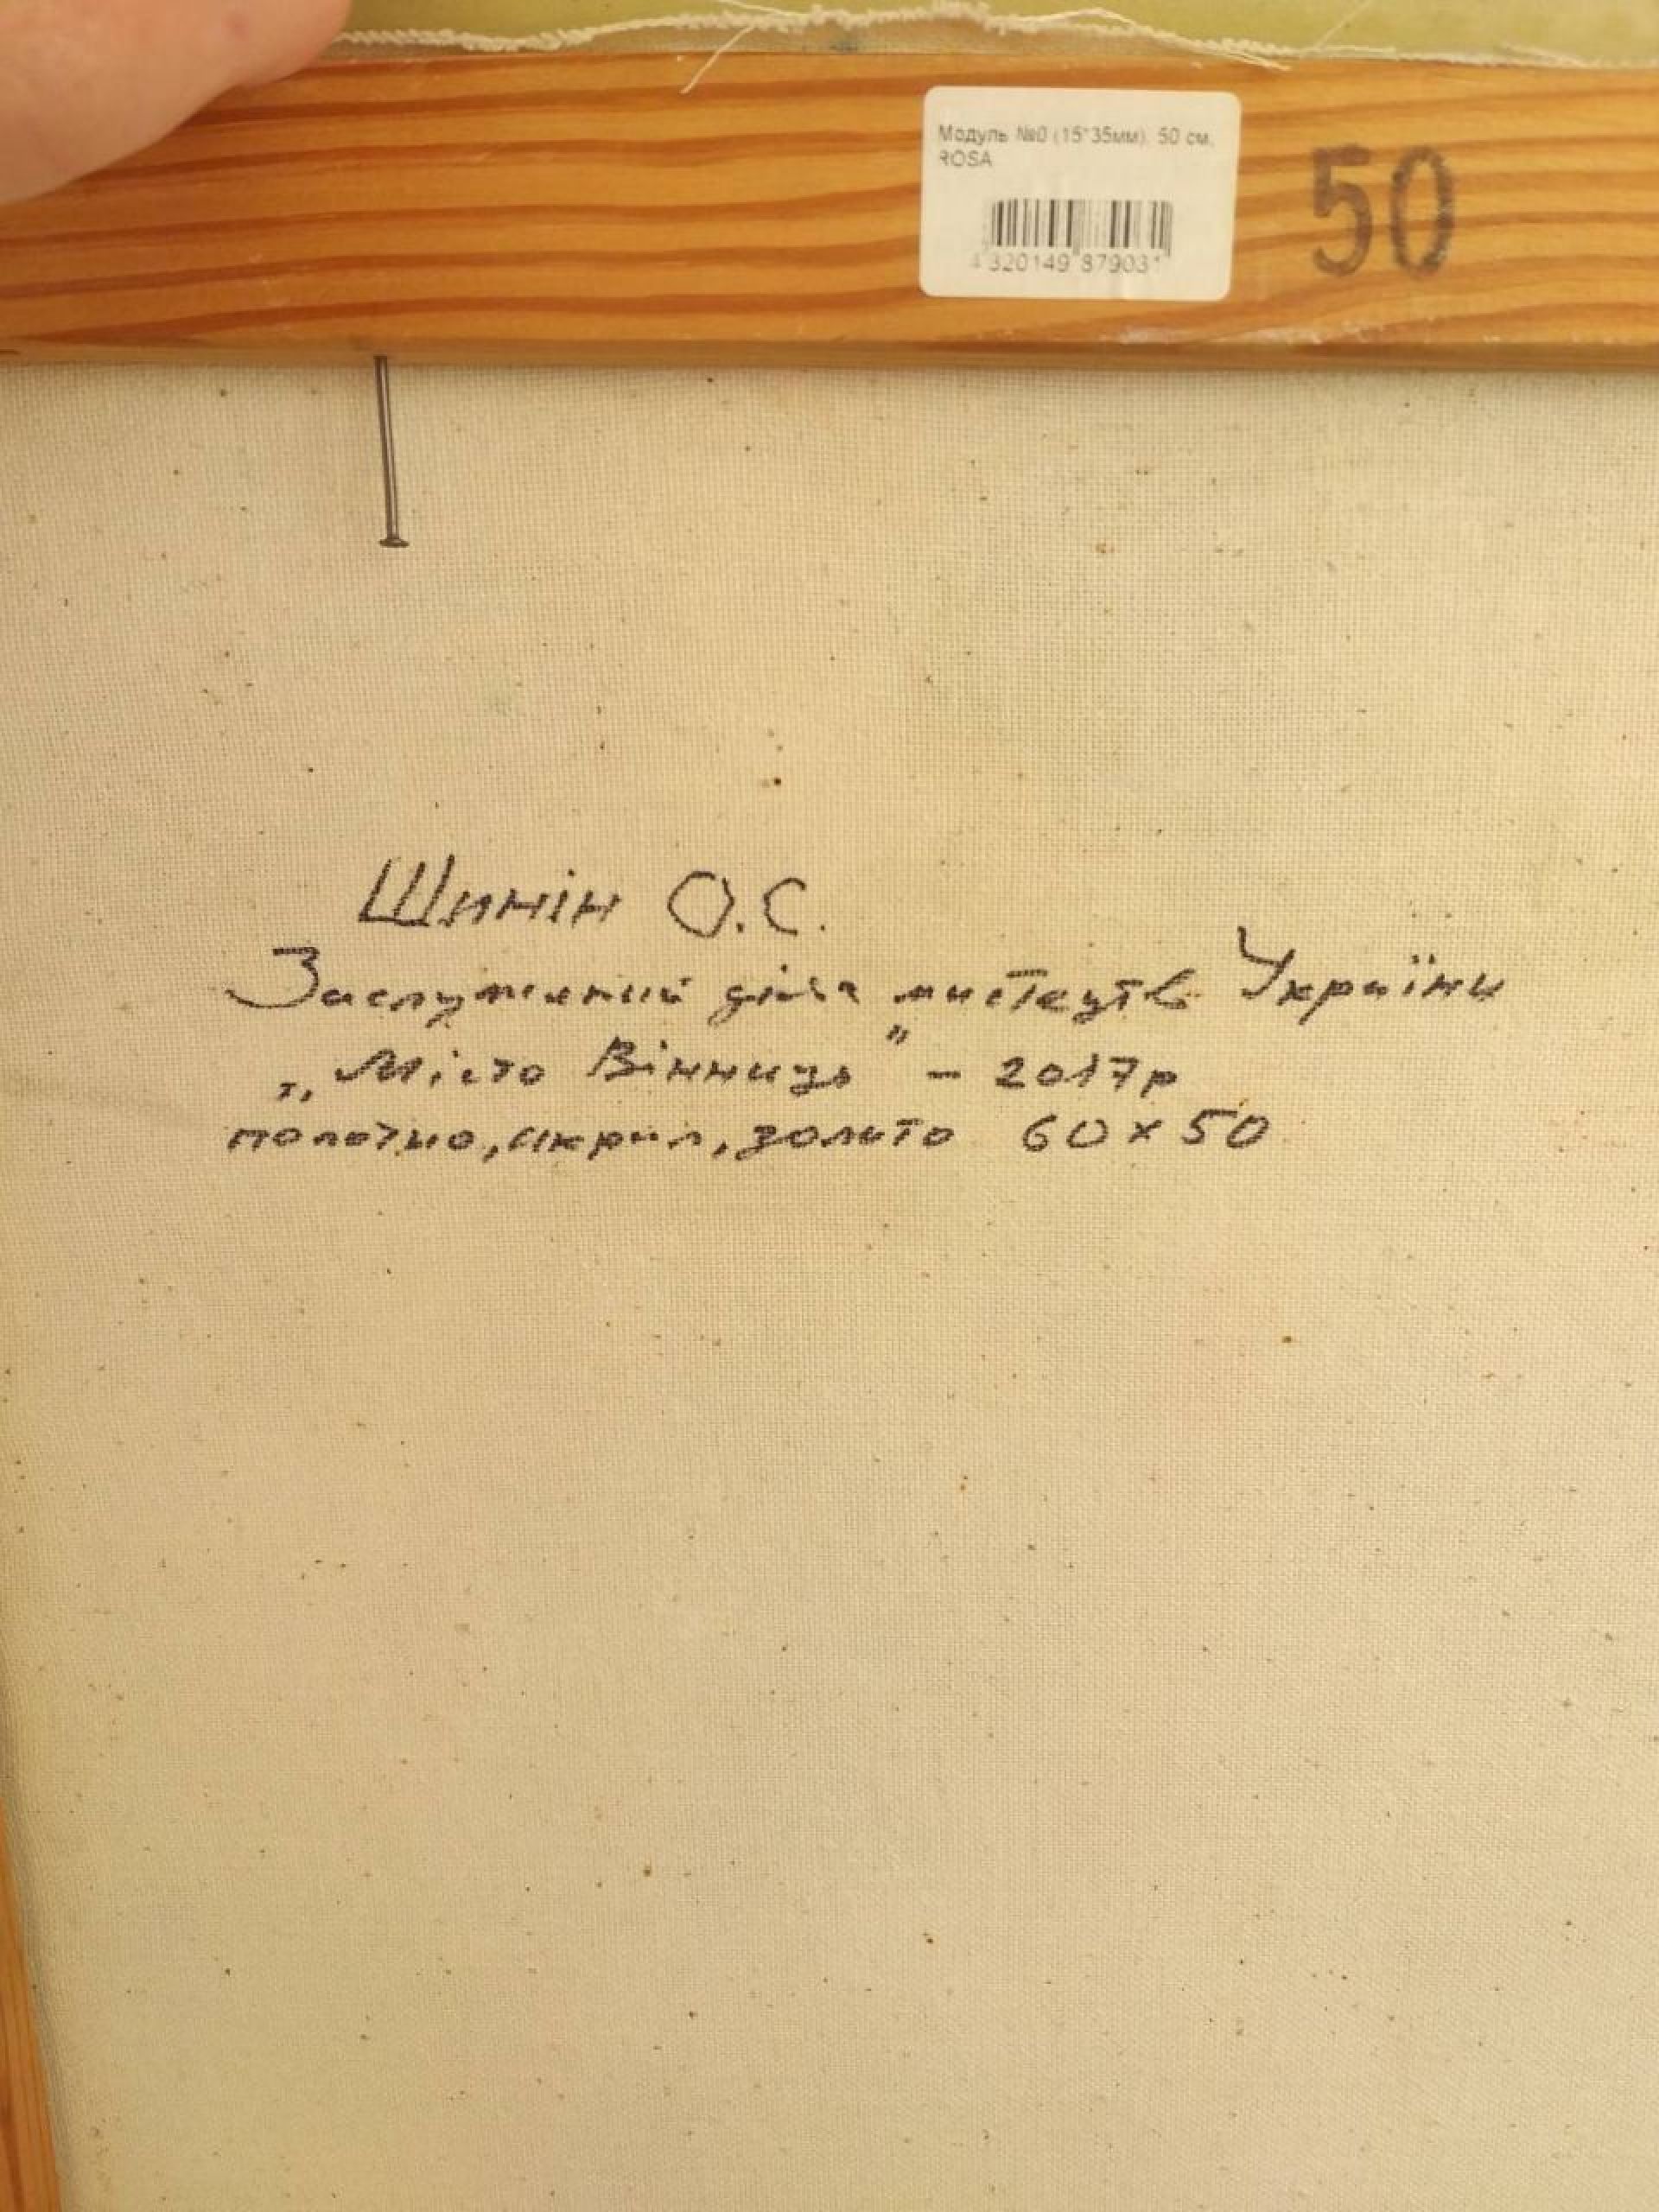 Модуль №0 (15*35мм), 50 см,
ROSA
4 320149 879031
50
Шинін О.С.
Заслужений діяч мистецтв України
„Місто Вінниця" - 2017р
полотно, акрил, золото 60 x 50